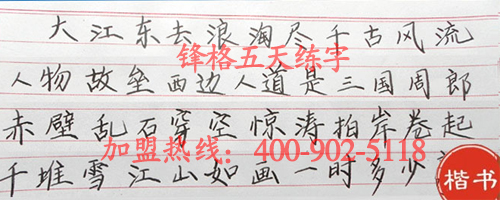 大江东去浪淘尽千古风流
锋格五天练字
人物故垒西边人道是三国周郎
赤壁乱石穿空惊涛拍岸卷起
加盟热线：400-902-5118
千堆雪江山如画一时多少
楷书